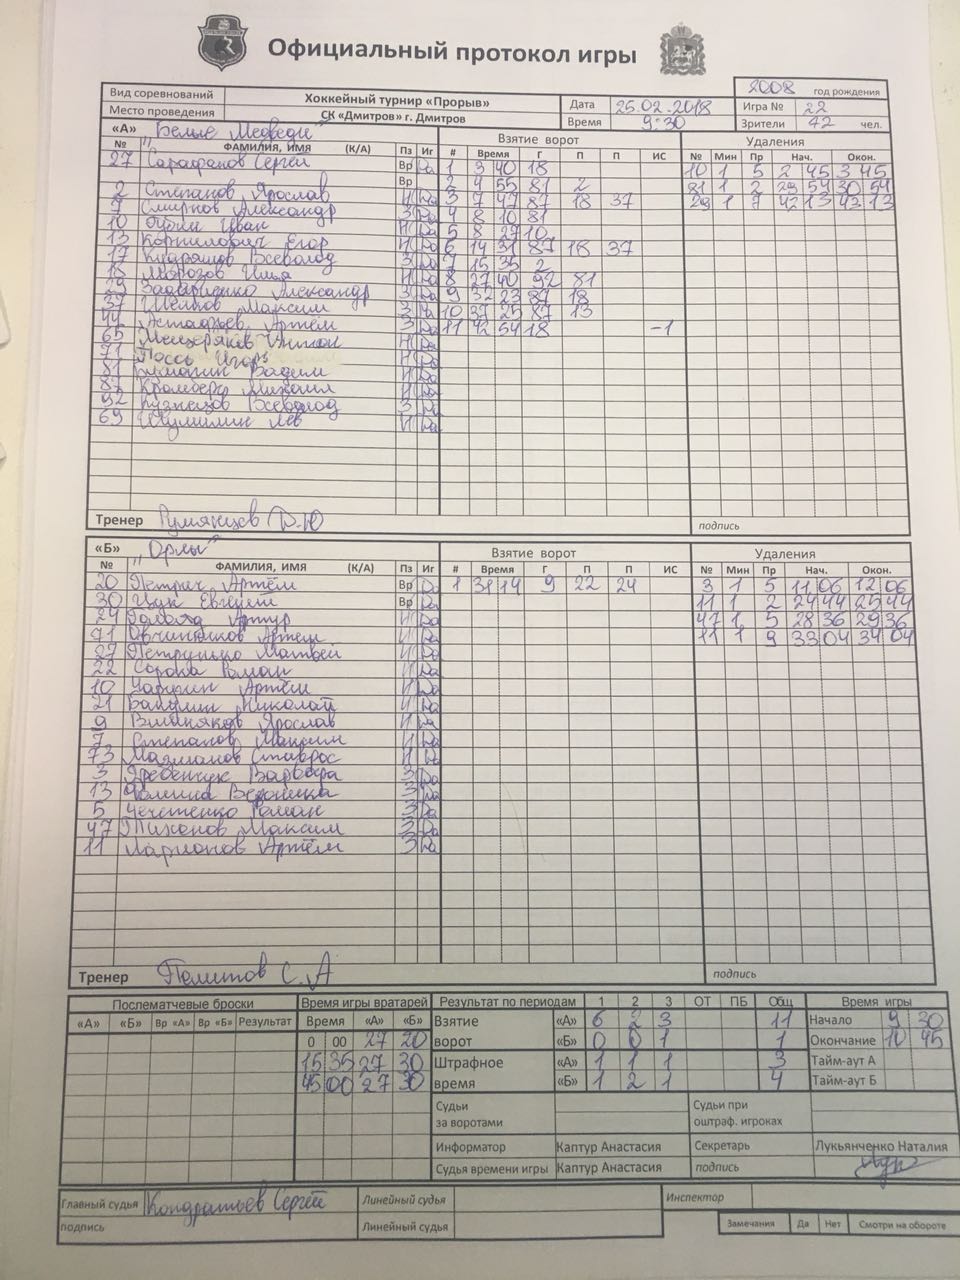 Официальный протокол игры
2008 год рождения
Вид соревнований Хоккейный турнир «Прорыв» Дата 25.02.2018 Игра № 22
Место проведения СК «Дмитров» г. Дмитров Время 9:30 Зрители 42 чел.
«А» "Белые Медведи" Взятие ворот Удаления
№ ФАМИЛИЯ, ИМЯ (К/А) Пз Иг # Время Г П П ИС № Мин Пр Нач. Окон.
27 Сарафанов Сергей Вр Да 1 3 40 18 10 1 5 2 45 3 45
Вр 2 4 55 81 2 81 1 2 29 54 30 54
2 Степанов Ярослав Н Да 3 7 47 87 18 37 29 1 7 42 13 43 13
Смирнов Александр З Да 4 8 10 81
10 Иван Н Да 5 8 27 10
13 Корнилович Егор Н Да 6 14 31 87 18 37
17 Кудряшов Всеволод З Да 7 15 35 2
18 Морозов Илья Н Да 8 27 40 92 81
29 Александр З Да 9 32 23 87 18
37 Максим З Да 10 37 25 87 13
44 Астафьев Артём З Да 11 42 54 18 -1
65 Мещеряков Н Да
71 Россь Игорь Н Да
81 Вадим Н Да
87 Кромберг Михаил Н Да
92 Кузнецов Всеволод З Да
69 Шумилин Лев Н Да
Тренер Румянцев Д.Ю подпись
«Б» "Орлы" Взятие ворот Удаления
№ ФАМИЛИЯ, ИМЯ (К/А) Пз Иг # Время Г П П ИС № Мин Пр Нач. Окон.
20 Петрич Артём Вр Да 1 31 14 9 22 24 3 1 5 11 06 12 06
30 Цук Евгений Вр Да 11 1 2 24 44 25 44
24 Артур Н Да 47 1 5 28 36 29 36
71 Овчинников Артем Н Да 11 1 9 33 04 34 04
27 Петрунько Матвей Н Да
22 Сорока Роман Н Да
10 Артём Н Да
21 Бакулин Николай Н Да
9 Ярослав Н Да
7 Степанов Максим Н Да
73 Мазманов Ставрос Н Да
3 Гребенчук Варвара З Да
13 Фомина Вероника З Да
5 Чечетенко Роман З Да
47 Тихонов Максим З Да
11 Ларионов Артём З Да
Тренер Политов С.А подпись
Послематчевые броски Время игры вратарей Результат по периодам 1 2 3 ОТ ПБ Общ Время игры
«А» «Б» Вр «А» Вр «Б» Результат Время «А» «Б» Взятие «А» 6 2 3 11 Начало 9 30
0 00 27 20 ворот «Б» 0 0 1 1 Окончание 10 45
15 35 27 30 Штрафное «А» 1 1 1 3 Тайм-аут А
45 00 27 30 время «Б» 1 2 1 4 Тайм-аут Б
Судьи за воротами Судьи при оштраф. игроках
Информатор Каптур Анастасия Секретарь Лукьянченко Наталия
Судья времени игры Каптур Анастасия подпись
Главный судья Кондратьев Сергей Линейный судья Инспектор
подпись Линейный судья Замечания Да Нет Смотри на обороте